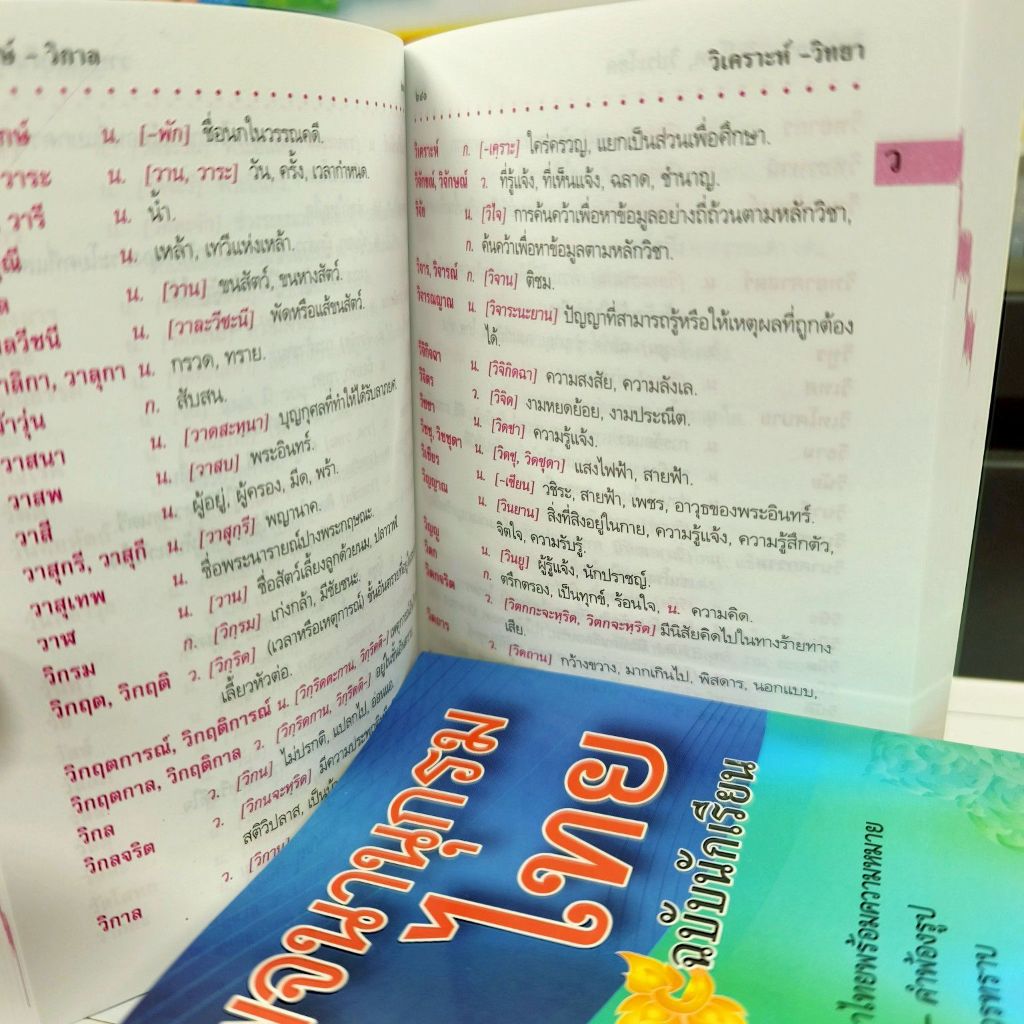 วิกาล
น. [-พัก] ชื่อนกในวรรณคดี.
วาระ น. [วาน, วาระ] วัน, ครั้ง, เวลากำหนด.
วารี น. น้ำ.
น. เหล้า, เทวีแห่งเหล้า.
น. [วาน] ขนสัตว์, ขนหางสัตว์.
น. [วาละวีชะนี] พัดหรือแส้ขนสัตว์.
วาสุกา น. กรวด, ทราย.
ก. สับสน.
วาสนา น. [วาดสะหฺนา] บุญกุศลที่ทำให้ได้รับลาภยศ.
วาสพ น. [วาสบ] พระอินทร์.
วาสี น. ผู้อยู่, ผู้ครอง, มีด, พร้า.
วาสุกรี, วาสุกี น. [วาสุกฺรี] พญานาค.
วาสุเทพ น. ชื่อพระนารายณ์ปางพระกฤษณะ.
วาฬ น. [วาน] ชื่อสัตว์เลี้ยงลูกด้วยนม, ปลาวาฬ
วิกรม ก. [วิกฺรม] เก่งกล้า, มีชัยชนะ.
วิกฤต, วิกฤติ ว. [วิกฺริด] (เวลาหรือเหตุการณ์) ขั้นอันตรายที่
เลี้ยวหัวต่อ.
วิกฤตการณ์, วิกฤติการณ์ น. [วิกฺริดตะกาน, วิกฺริดติ-]
วิกฤตกาล, วิกฤติกาล ว. [วิกฺริดกาน, วิกฺริดติ-] อยู่ในขั้น
วิกล ว. [วิกน] ไม่ปรกติ, แปลกไป, อ่อนแอ.
วิกลจริต ว. [วิกนจะหฺริด] มีความประพฤติ
สติวิปลาส,
วิกาล ว. [วิกาน]
วิเคราะห์ - วิทยา
๒๘๑
ว
วิเคราะห์ ก. [-เคฺราะ] ใคร่ครวญ, แยกเป็นส่วนเพื่อศึกษา.
วิจักขณ์, วิจักษณ์ ว. ที่รู้แจ้ง, ที่เห็นแจ้ง, ฉลาด, ชำนาญ.
วิจัย น. [วิไจ] การค้นคว้าเพื่อหาข้อมูลอย่างถี่ถ้วนตามหลักวิชา,
ก. ค้นคว้าเพื่อหาข้อมูลตามหลักวิชา.
วิจาร, วิจารณ์ ก. [วิจาน] ติชม.
วิจารณญาณ น. [วิจาระนะยาน] ปัญญาที่สามารถรู้หรือให้เหตุผลที่ถูกต้อง
ได้.
วิจิกิจฉา น. [วิจิกิดฉา] ความสงสัย, ความลังเล.
วิจิตร ว. [วิจิด] งามหยดย้อย, งามประณีต.
วิชชา น. [วิดชา] ความรู้แจ้ง.
วิชชุ, วิชชุดา น. [วิดชุ, วิดชุดา] แสงไฟฟ้า, สายฟ้า.
วิเชียร น. [-เชียน] วชิระ, สายฟ้า, เพชร, อาวุธของพระอินทร์.
วิญญาณ น. [วินยาน] สิ่งที่สิงอยู่ในกาย, ความรู้แจ้ง, ความรู้สึกตัว,
จิตใจ, ความรับรู้.
วิญญู น. [วินยู] ผู้รู้แจ้ง, นักปราชญ์.
วิตก ก. ตรึกตรอง, เป็นทุกข์, ร้อนใจ, น. ความคิด.
วิตกจริต ว. [วิตกกะจะหฺริด, วิตกจะหฺริด] มีนิสัยคิดไปในทางร้ายทาง
เสีย.
วิตถาร ว. [วิดถาน] กว้างขวาง, มากเกินไป, พิสดาร, นอกแบบ,
พจนานุกรม
ไทย
ฉบับนักเรียน
ไทยพร้อมความหมาย
- คำพ้องรูป